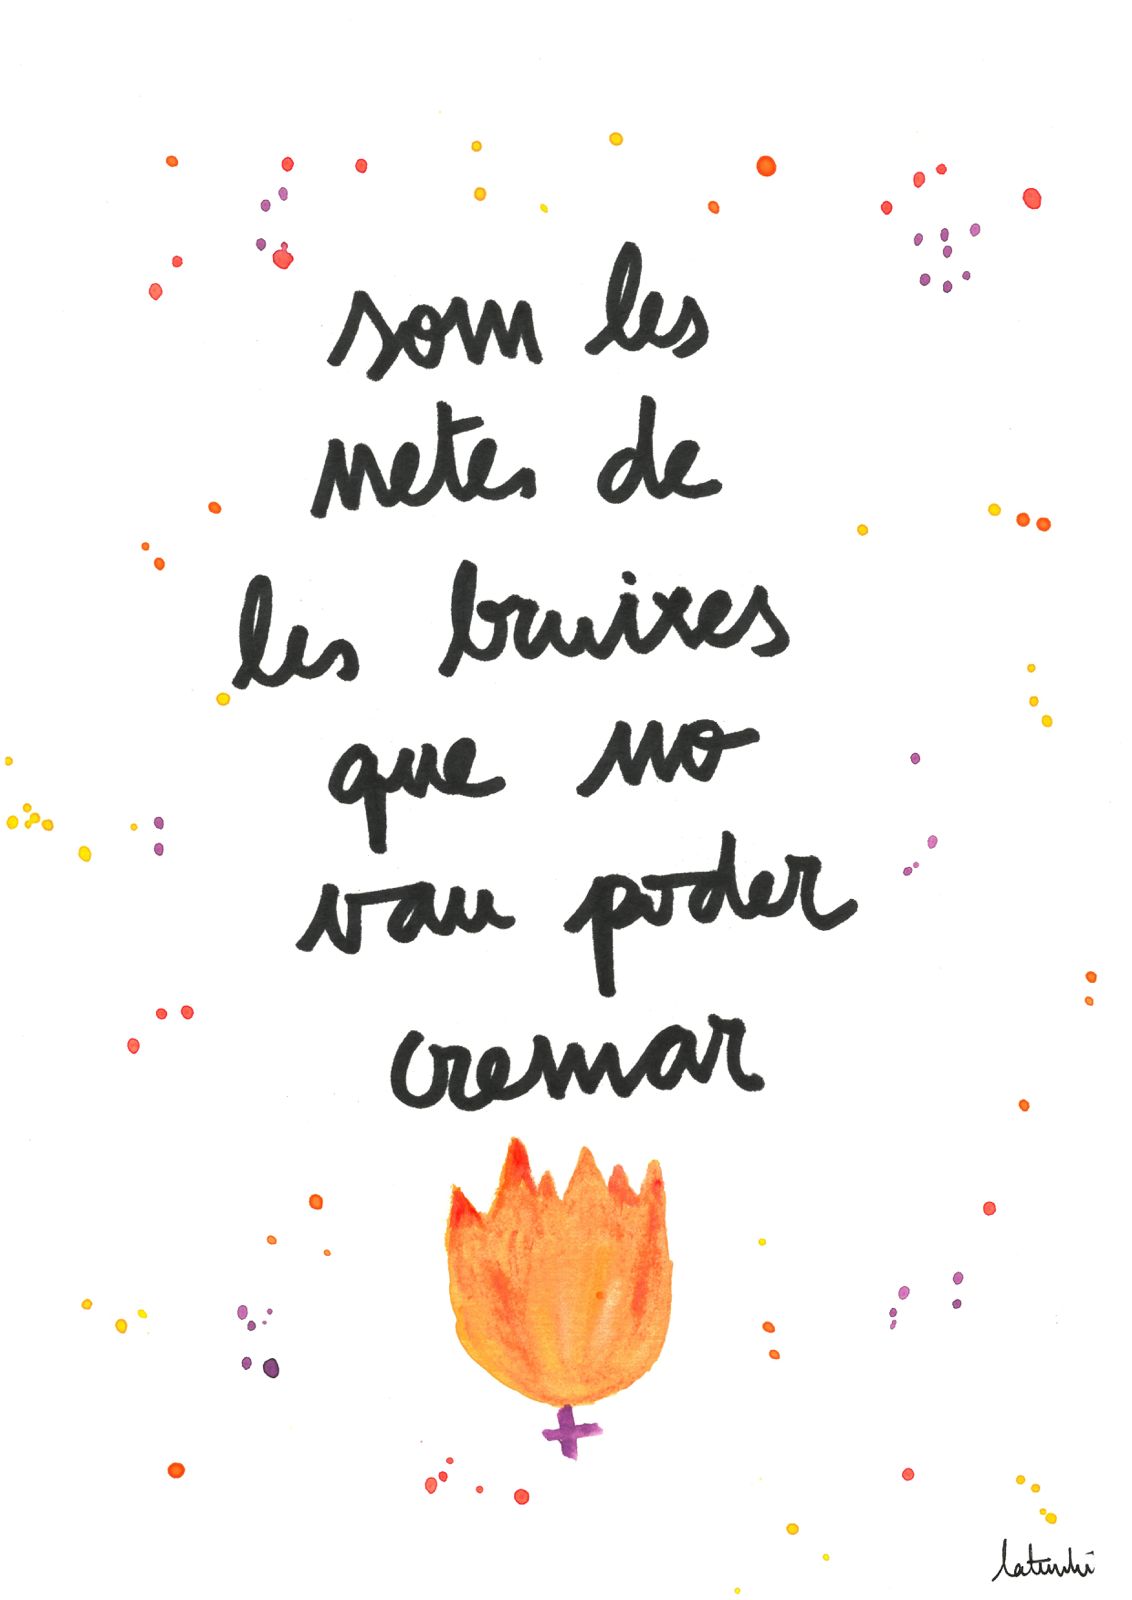 som les
netes de
les bruixes
que no
vau poder
cremar